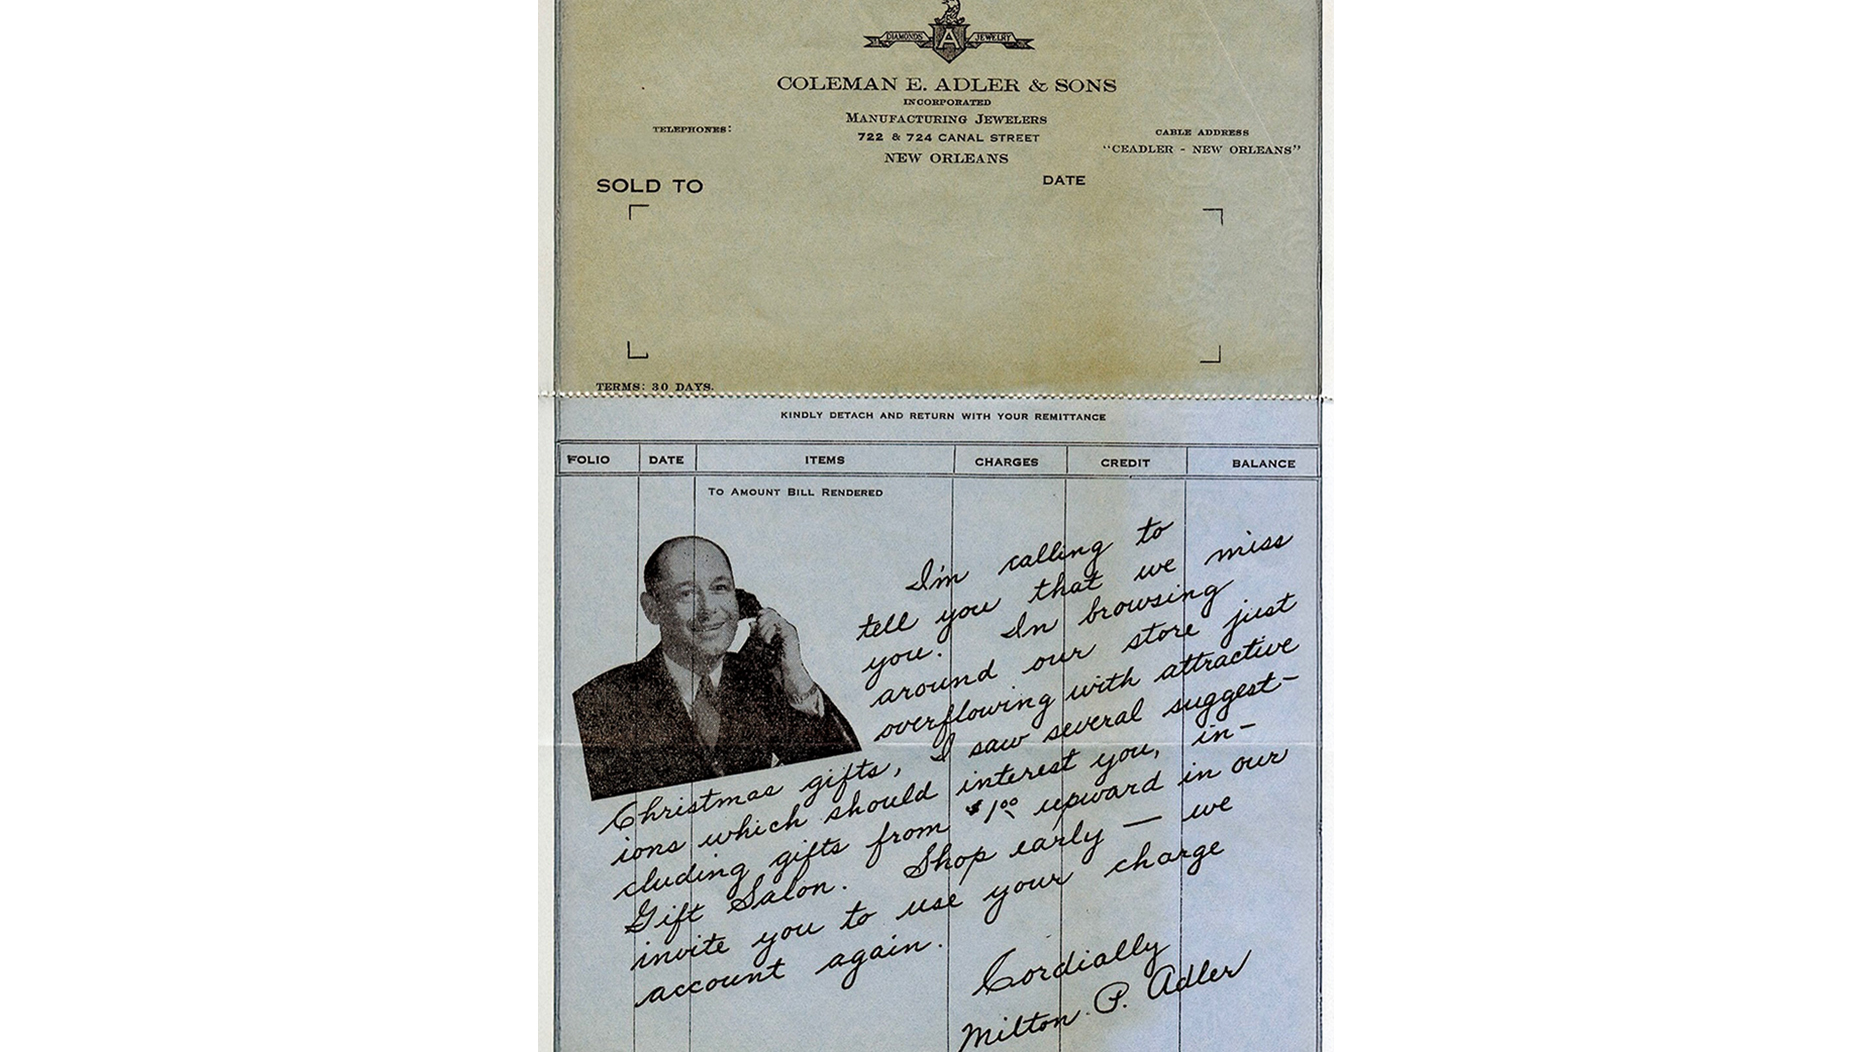 DIAMONDS A JEWELRY
COLEMAN E. ADLER & SONS
INCORPORATED
MANUFACTURING JEWELERS
722 & 724 CANAL STREET
NEW ORLEANS
TELEPHONES:
CABLE ADDRESS
"CEADLER - NEW ORLEANS"
SOLD TO
DATE
TERMS: 30 DAYS.
KINDLY DETACH AND RETURN WITH YOUR REMITTANCE
FOLIO DATE ITEMS CHARGES CREDIT BALANCE
TO AMOUNT BILL RENDERED
I'm calling to
tell you that we miss
you. In browsing
around our store just
overflowing with attractive
Christmas gifts, I saw several suggest-
ions which should interest you, in-
cluding gifts from $1.00 upward in our
Gift Salon. Shop early — we
invite you to use your charge
account again.
Cordially
Milton P. Adler